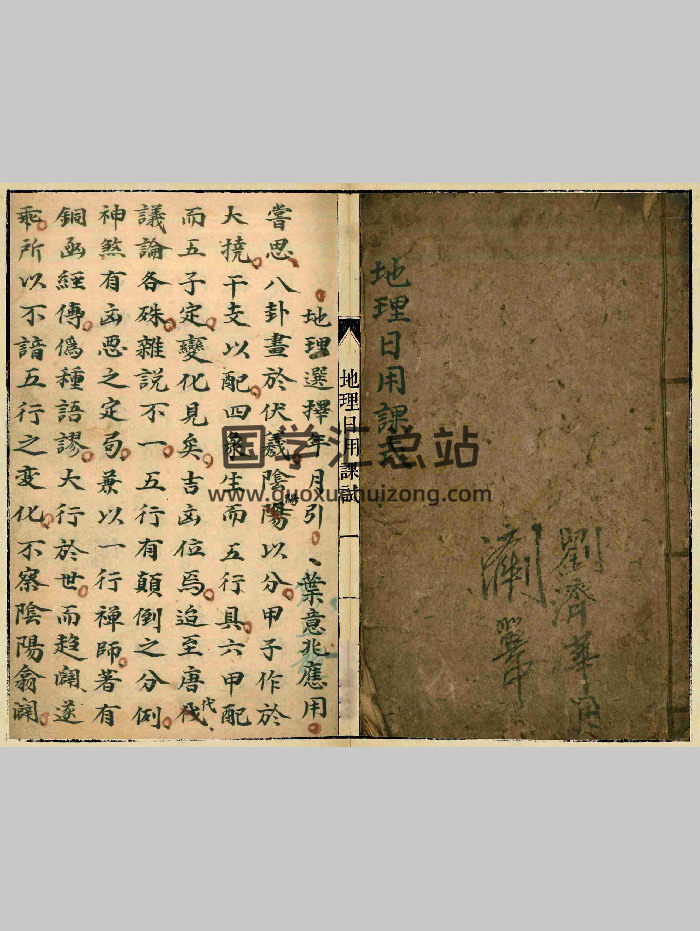 地理日用課式
劉濟華
地理日用課試
地理選擇年月引、葉意兆應用
嘗思八卦畫於伏羲陰陽以分甲子作於
陽
大撓干支以配四象生而五行具六甲配
而五子定變化見矣吉凶位焉迨至唐代
代
議論各殊雜說不一五行有顛倒之分例
神煞有凶惡之定局兼以一行禪師著有
銅函經傳偽種語謬大行於世而趋闊遂
乖所以不諳五行之变化不察陰陽翕闢
国学汇总站
www.guoxuehuizong.com